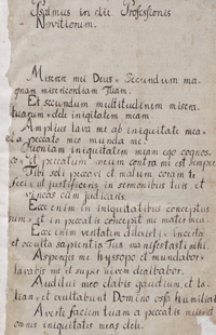 Psalmus in die Professionis
Novitiorum.
Miserere mei Deus. Secundum ma-
gnam misericordiam Tuam.
Et secundum multitudinem misera-
tionum dele iniqitatem meam.
Amplius lava me ab iniquitate mea
a peccato meo munda me.
Quoniam iniquitatem meam ego cognos-
et peccatum meum contra me est semper
Tibi soli peccavi et malum coram te
feci ut justificeris in sermonibus tuis et
vincas cum judicaris.
Ecce enim in iniquitatibus conceptus
sum et in peccatis concepit me mater mea.
Ecce enim veritatem dilexisti incerta
et occulta sapientiae Tuae manifestasti mihi.
Asperges me hyssopo et mundabor
lavabis me et super nivem dealbabor.
Auditui meo dabis gaudium et la-
titiam et exultabunt ossa humiliat
Averte faciem tuam a peccatis meis
omnes iniquitates meas dele.